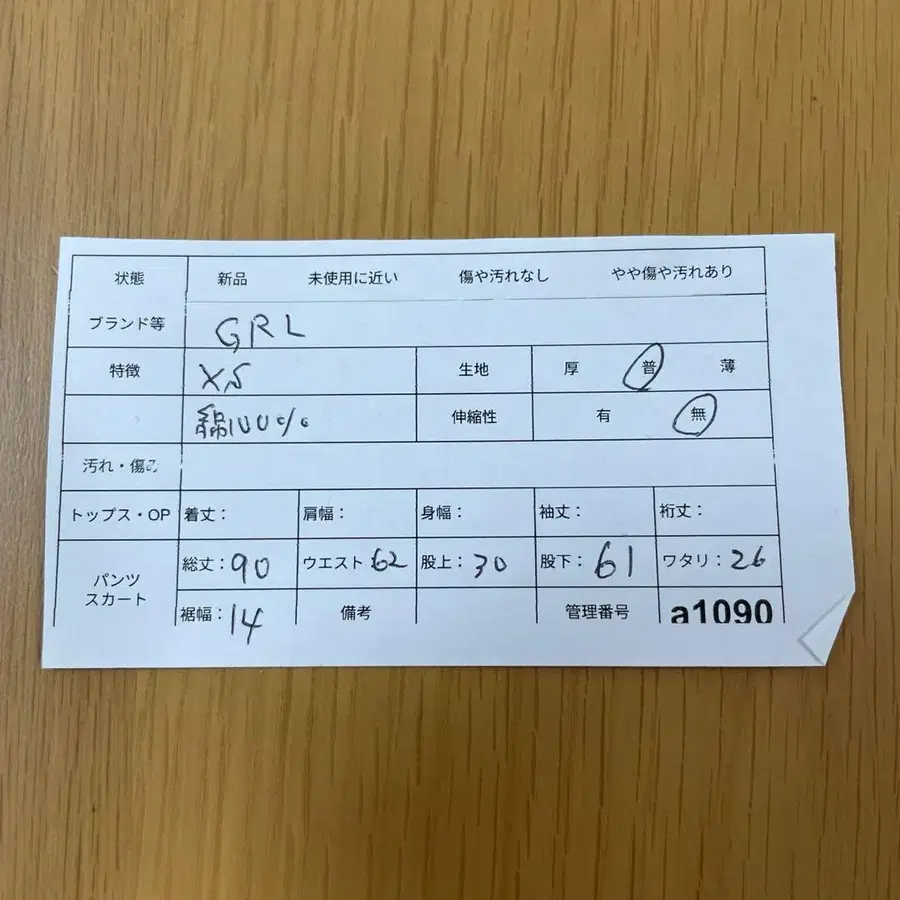 状態 新品 未使用に近い 傷や汚れなし やや傷や汚れあり
ブランド等 GRL
特徴 XS 生地 厚 普 薄
綿100% 伸縮性 有 無
汚れ・傷み
トップス・OP 着丈： 肩幅： 身幅： 袖丈： 裄丈：
パンツ
スカート
総丈：90 ウエスト 62 股上：30 股下：61 ワタリ：26
裾幅：14 備考 管理番号 a1090